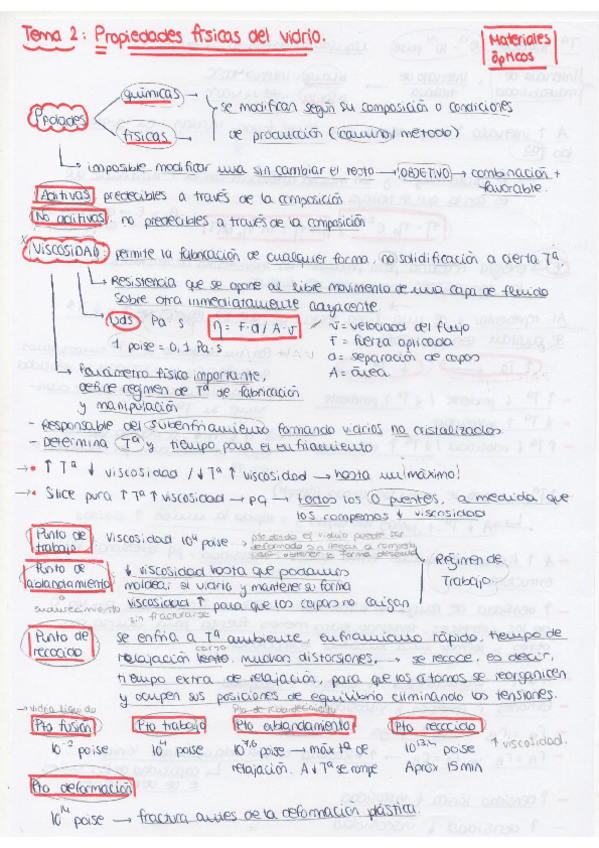 Tema 2: Propiedades físicas del vidrio.
Materiales ópticos
Ppdades
químicas
físicas
se modifican según su composición o condiciones
de producción (camino/método)
imposible modificar una sin cambiar el resto → OBJETIVO → combinación + favorable.
Aditivas: predecibles a través de la composición
No aditivas: no predecibles a través de la composición
VISCOSIDAD: permite la fabricación de cualquier forma, no solidificación a cierta Tª
Resistencia que se opone al libre movimiento de una capa de fluido
sobre otra inmediatamente adyacente
Uds Pa·s η = F·d / A·v
1 poise = 0,1 Pa·s
v = velocidad del flujo
F = fuerza aplicada
d = separación de capas
A = área
Parámetro físico importante,
define régimen de Tª de fabricación
y manipulación
- Responsable del subenfriamiento formando vidrios no cristalizados
- Determina Tª y tiempo para el enfriamiento
→ • ↑ Tª ↓ viscosidad / ↓ Tª ↑ viscosidad → hasta un ¡máximo!
→ • Sílice pura ↑ Tª ↑ viscosidad → pq todos los O puentes, a medida que
los rompemos ↓ viscosidad
Punto de trabajo Viscosidad 10⁴ poise
Punto de ablandamiento
↓ viscosidad hasta que podamos
moldear el vidrio y mantener su forma
viscosidad ↑ para que las capas no caigan
sin fracturarse
Régimen de Trabajo
Punto de recocido
se enfría a Tª ambiente, enfriamiento rápido, tiempo de
relajación lento, muchas distorsiones, → se recoce, es decir,
tiempo extra de relajación, para que los átomos se reorganicen
y ocupen sus posiciones de equilibrio eliminando las tensiones.
→ vidrio líquido
Pto fusión
10⁻² poise
Pto trabajo
10⁴ poise
Pto ablandamiento
10⁷,⁶ poise → máx tª de
relajación. A ↓ Tª se rompe
Pto recocido
10¹³,⁴ poise
Aprox 15 min
↑ viscosidad.
Pto deformación
10¹⁴ poise → fractura antes de la deformación plástica.